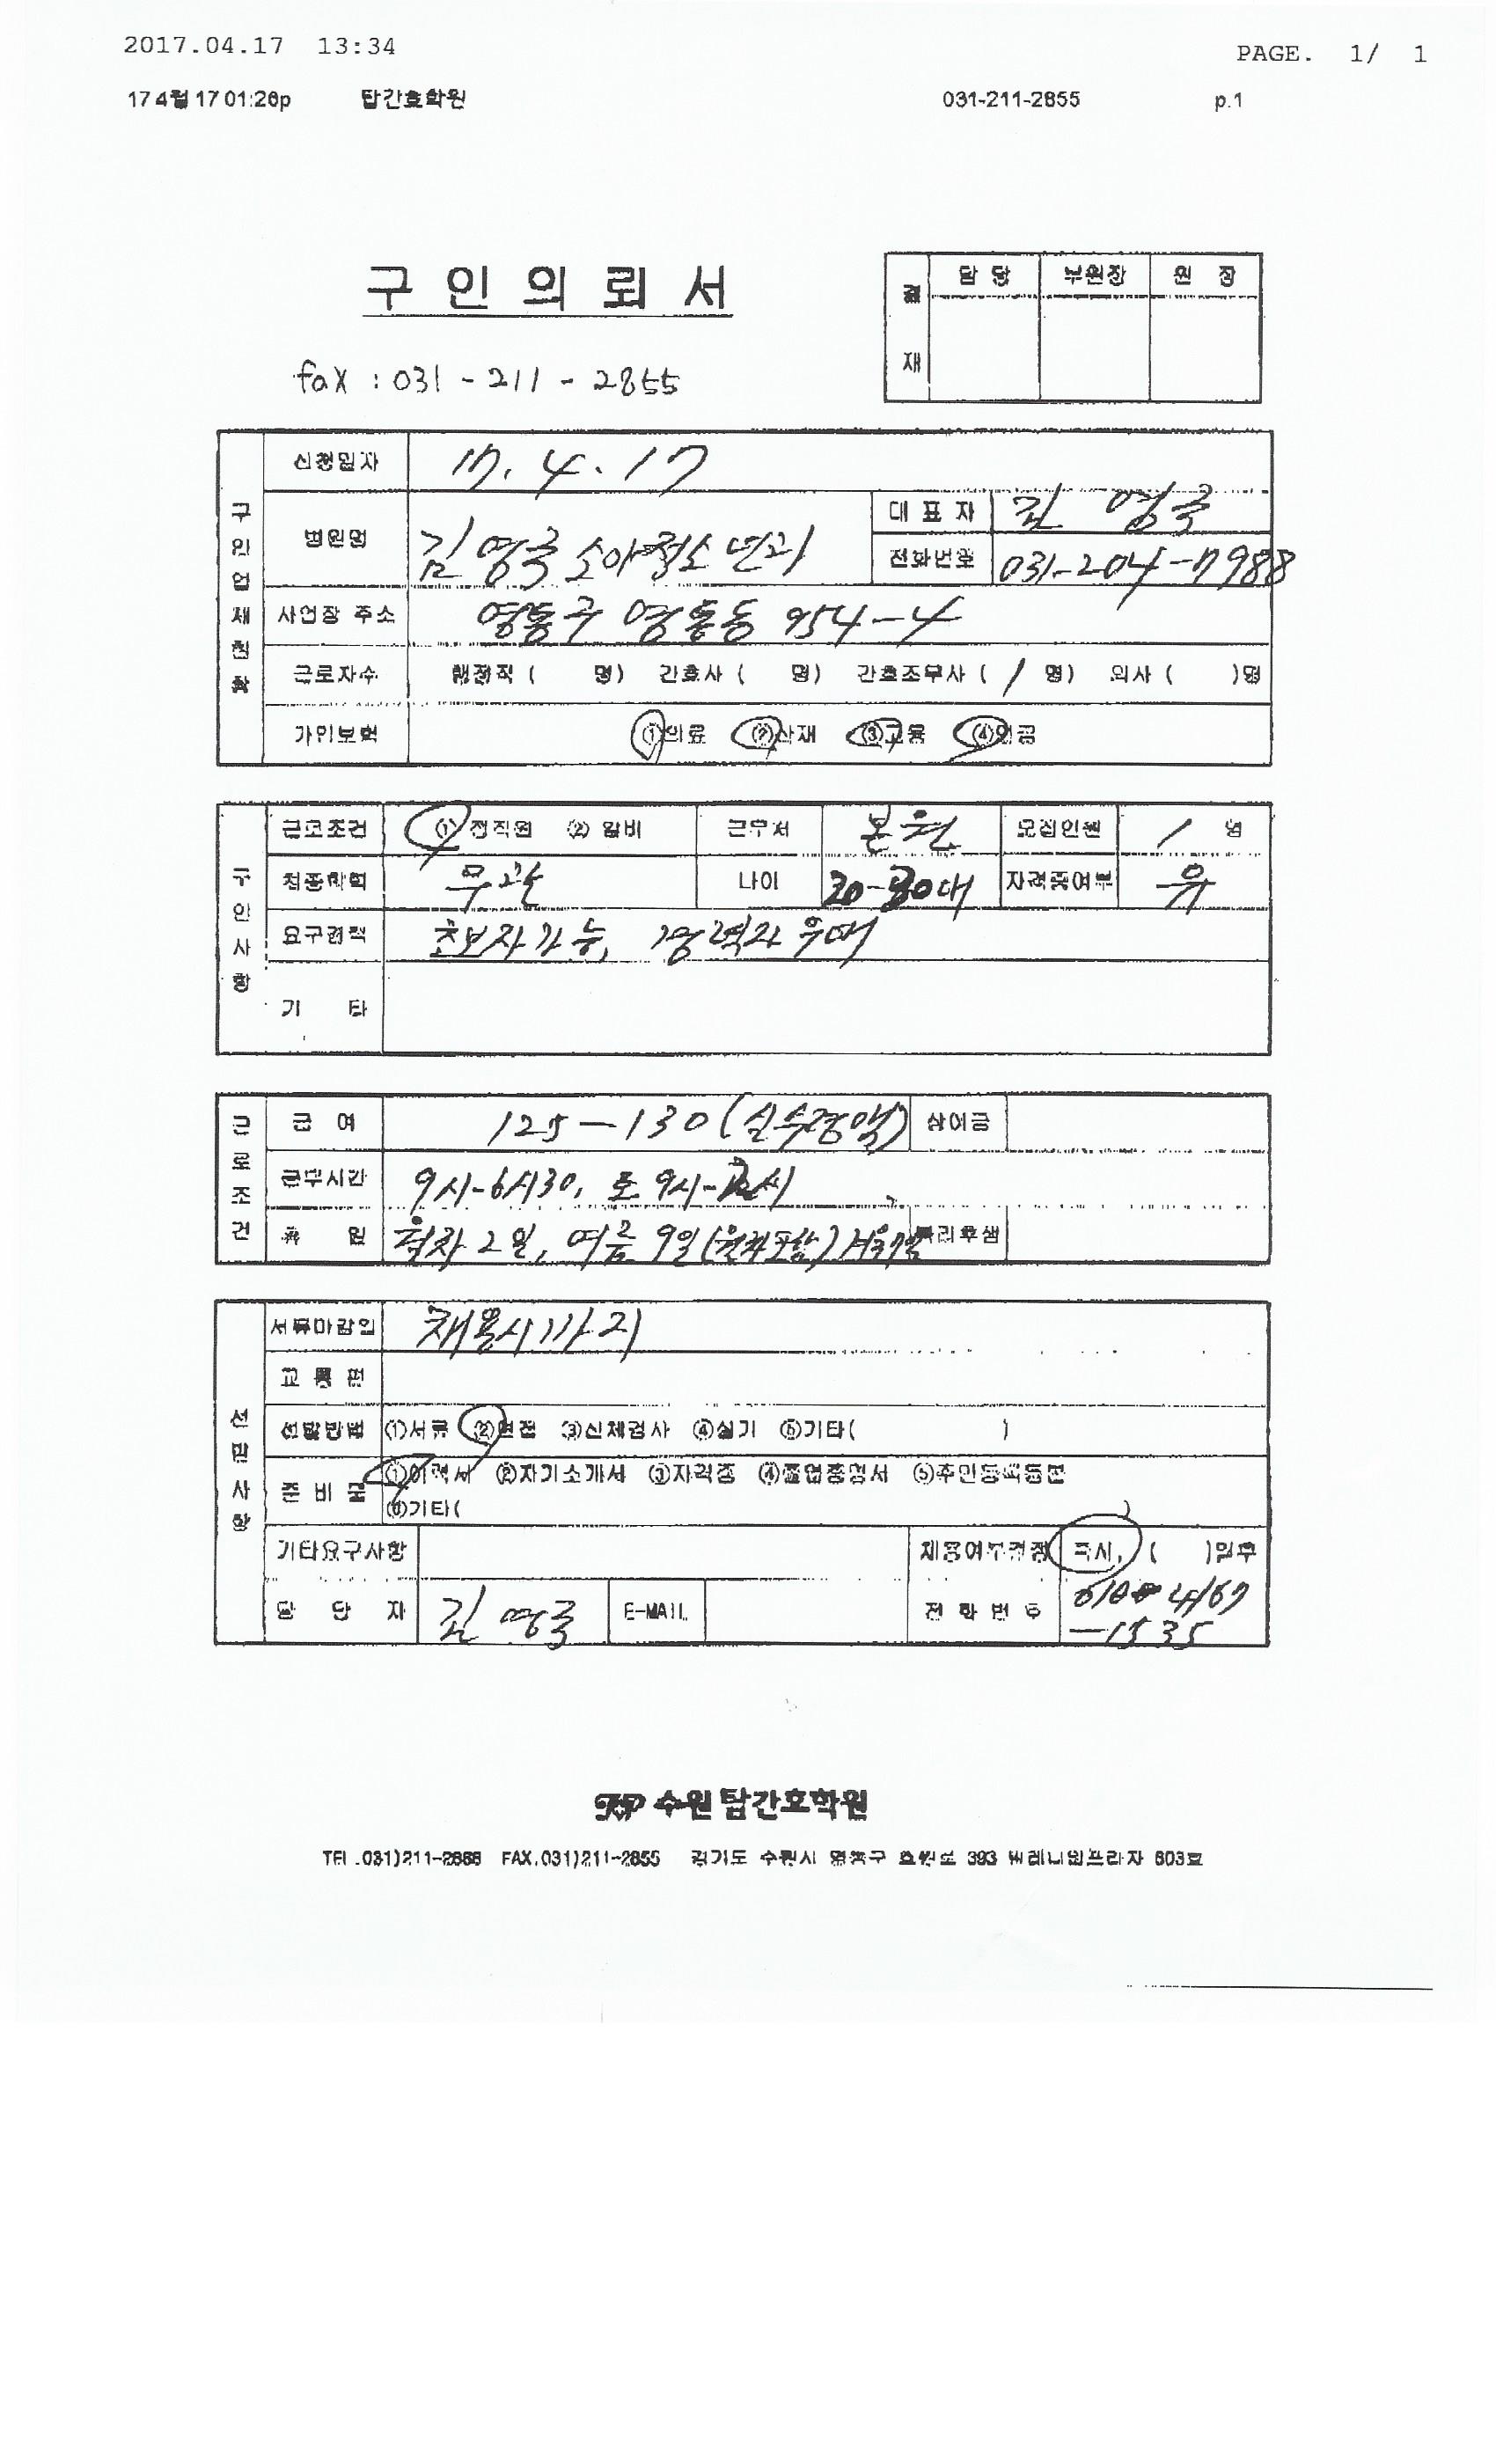 2017.04.17 13:34 PAGE. 1/ 1
17 4월 17 01:26p 탑간호학원 031-211-2855 p.1
구인의뢰서
결재 담당 부원장 원장
fax : 031 - 211 - 2855
구인업체현황
신청일자 17. 4. 17
병원명 김영국소아청소년과 대표자 김영국
전화번호 031-204-7988
사업장 주소 영통구 영통동 954-4
근로자수 행정직 ( 명) 간호사 ( 명) 간호조무사 ( 1 명) 의사 ( )명
가입보험 ①의료 ②산재 ③고용 ④연금
구인사항
근로조건 ① 정직원 ② 알바 근무처 본원 모집인원 1 명
최종학력 무관 나이 20-30대 자격증여부 유
요구경력 초보자가능, 경력자 우대
기 타
근로조건
급 여 125-130 (실수령액) 상여금
근무시간 9시-6시30, 토 9시-
휴 일 월차 2일, 여름 9일 (월차포함) 복리후생
선발사항
서류마감일 채용시까지
교통편
선발방법 ①서류 ②면접 ③신체검사 ④실기 ⑤기타( )
준비물 ①이력서 ②자기소개서 ③자격증 ④졸업증명서 ⑤주민등록등본
⑥기타( )
기타요구사항 채용여부결정 즉시, ( )일후
담당자 김영국 E-MAIL 전화번호 010 4167
-1535
TOP 수원탑간호학원
TEL.031)211-2866 FAX.031)211-2855 경기도 수원시 영통구 효원로 393 603호